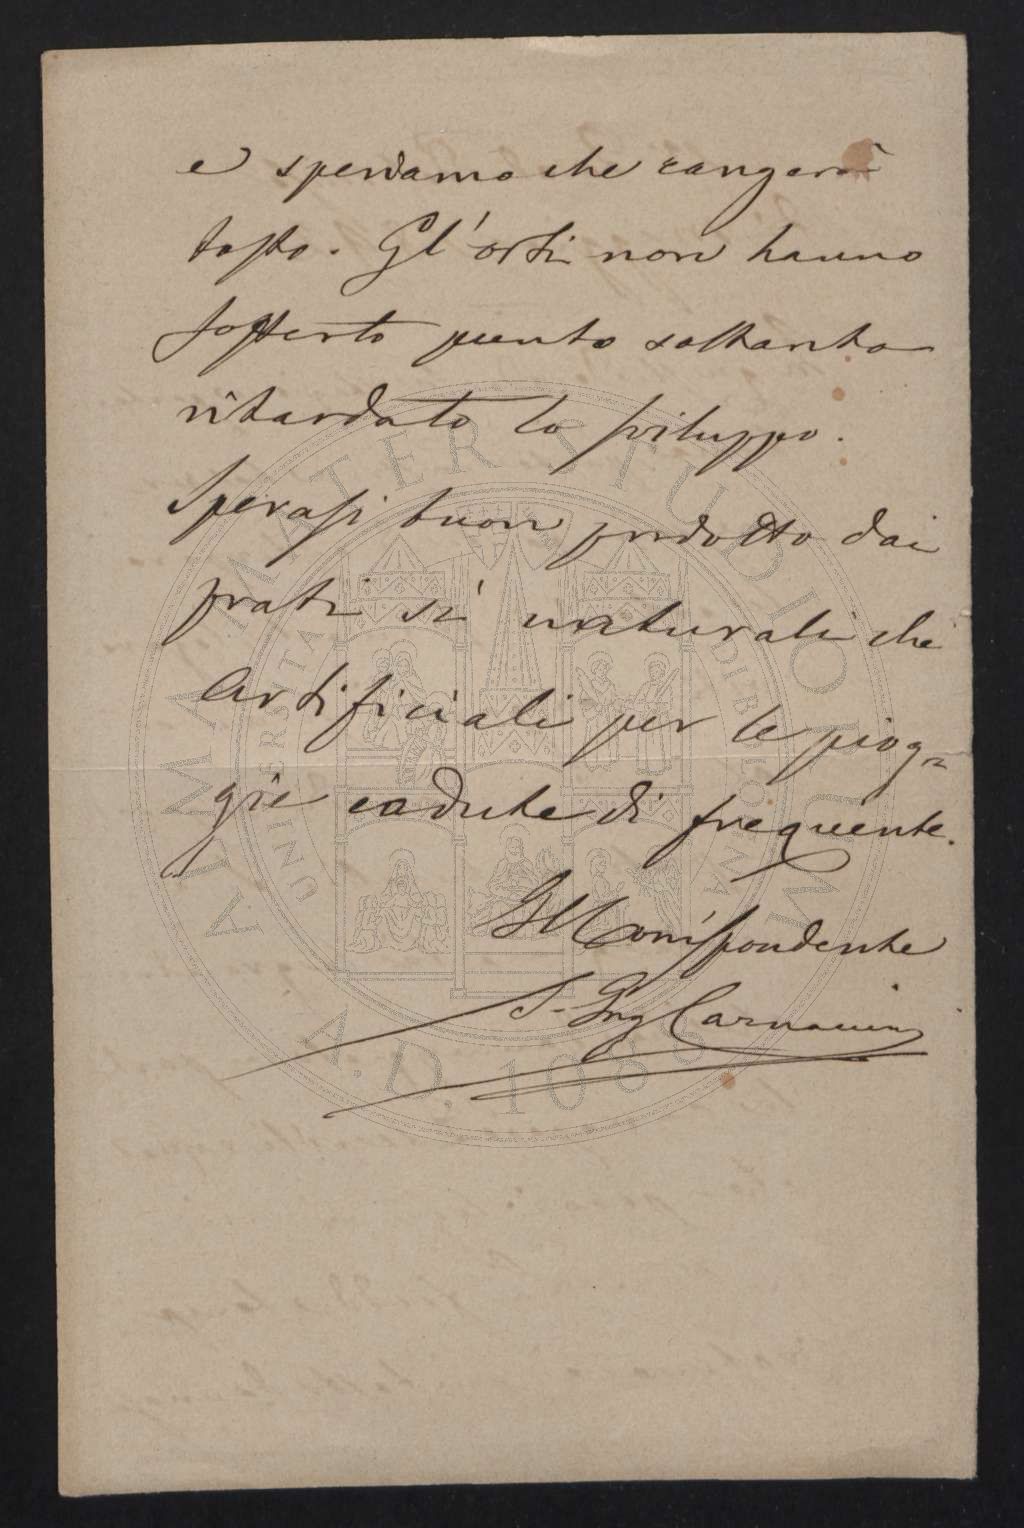 e speriamo che cangerà
tosto. Gl'orti non hanno
sofferto punto soltanto
ritardato lo sviluppo.
Sperasi buon prodotto dai
prati sì naturali che
artificiali per le piog=
gie cadute di frequente.
Il Corrispondente
Ing
ALMA MATER STUDIORUM
UNIVERSITÀ DI BOLOGNA
A.D. 1088